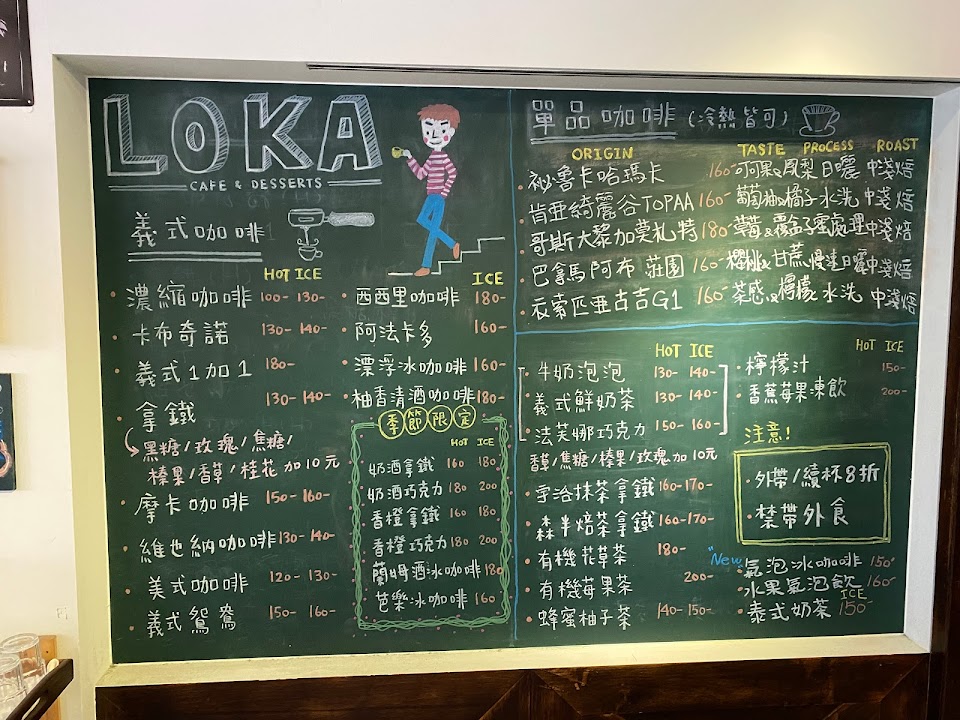 LOKA
CAFE & DESSERTS
義式咖啡
HOT ICE
濃縮咖啡 100- 130-
卡布奇諾 130- 140-
義式1加1 180-
拿鐵 130- 140-
黑糖/玫瑰/焦糖/
榛果/香草/桂花 加10元
摩卡咖啡 150- 160-
維也納咖啡 130- 140-
美式咖啡 120- 130-
義式鴛鴦 150- 160-
ICE
西西里咖啡 180-
阿法卡多 160-
漂浮冰咖啡 160-
柚香清酒咖啡 180-
季節限定
HOT ICE
奶酒拿鐵 160 180
奶酒巧克力 180 200
香橙拿鐵 160 180
香橙巧克力 180 200
蘭姆酒冰咖啡 180
芭樂冰咖啡 160
單品咖啡 (冷熱皆可)
ORIGIN TASTE PROCESS ROAST
祕魯卡哈瑪卡 160- 可可果&鳳梨 日曬 中淺焙
肯亞綺麗谷TOPAA 160- 葡萄柚&橘子 水洗 中淺焙
哥斯大黎加莫札特 180- 草莓&覆盆子 蜜處理 中淺焙
巴拿馬阿布莊園 160- 櫻桃&甘蔗 慢速日曬 中淺焙
衣索匹亞古吉G1 160- 茶感&檸檬 水洗 中淺焙
HOT ICE
牛奶泡泡 130- 140-
義式鮮奶茶 130- 140-
法芙娜巧克力 150- 160-
香草/焦糖/榛果/玫瑰加10元
宇治抹茶拿鐵 160- 170-
森半焙茶拿鐵 160- 170-
有機花草茶 180-
有機莓果茶 200-
蜂蜜柚子茶 140- 150-
HOT ICE
檸檬汁 150-
香蕉莓果凍飲 200-
注意!
外帶/續杯8折
禁帶外食
"New
氣泡冰咖啡 150-
水果氣泡飲 160-
ICE
泰式奶茶 150-